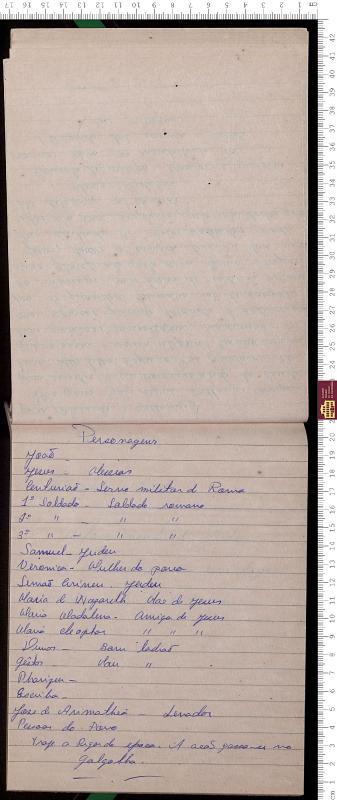 Personagens
João -
Jesus - Messias
Centurião - Servo militar d Roma
1º Soldado - Soldado romano
2º " - " "
3º " - " "
Samuel - Judeu
Veronica - Mulher do povo
Simão Cirineu - Judeu
Maria d Nazareth Mae de Jesus
Maria Madalena - Amiga de Jesus
Maria cleophas " " "
Dimas - Bom ladrão
Gestas Mau "
Phariseu -
Escriba -
Jose de Arimathéa - Senador
Pessoas do Povo
Traje a Rigor da epoca. A acaõ passa-se no
Galgotha.